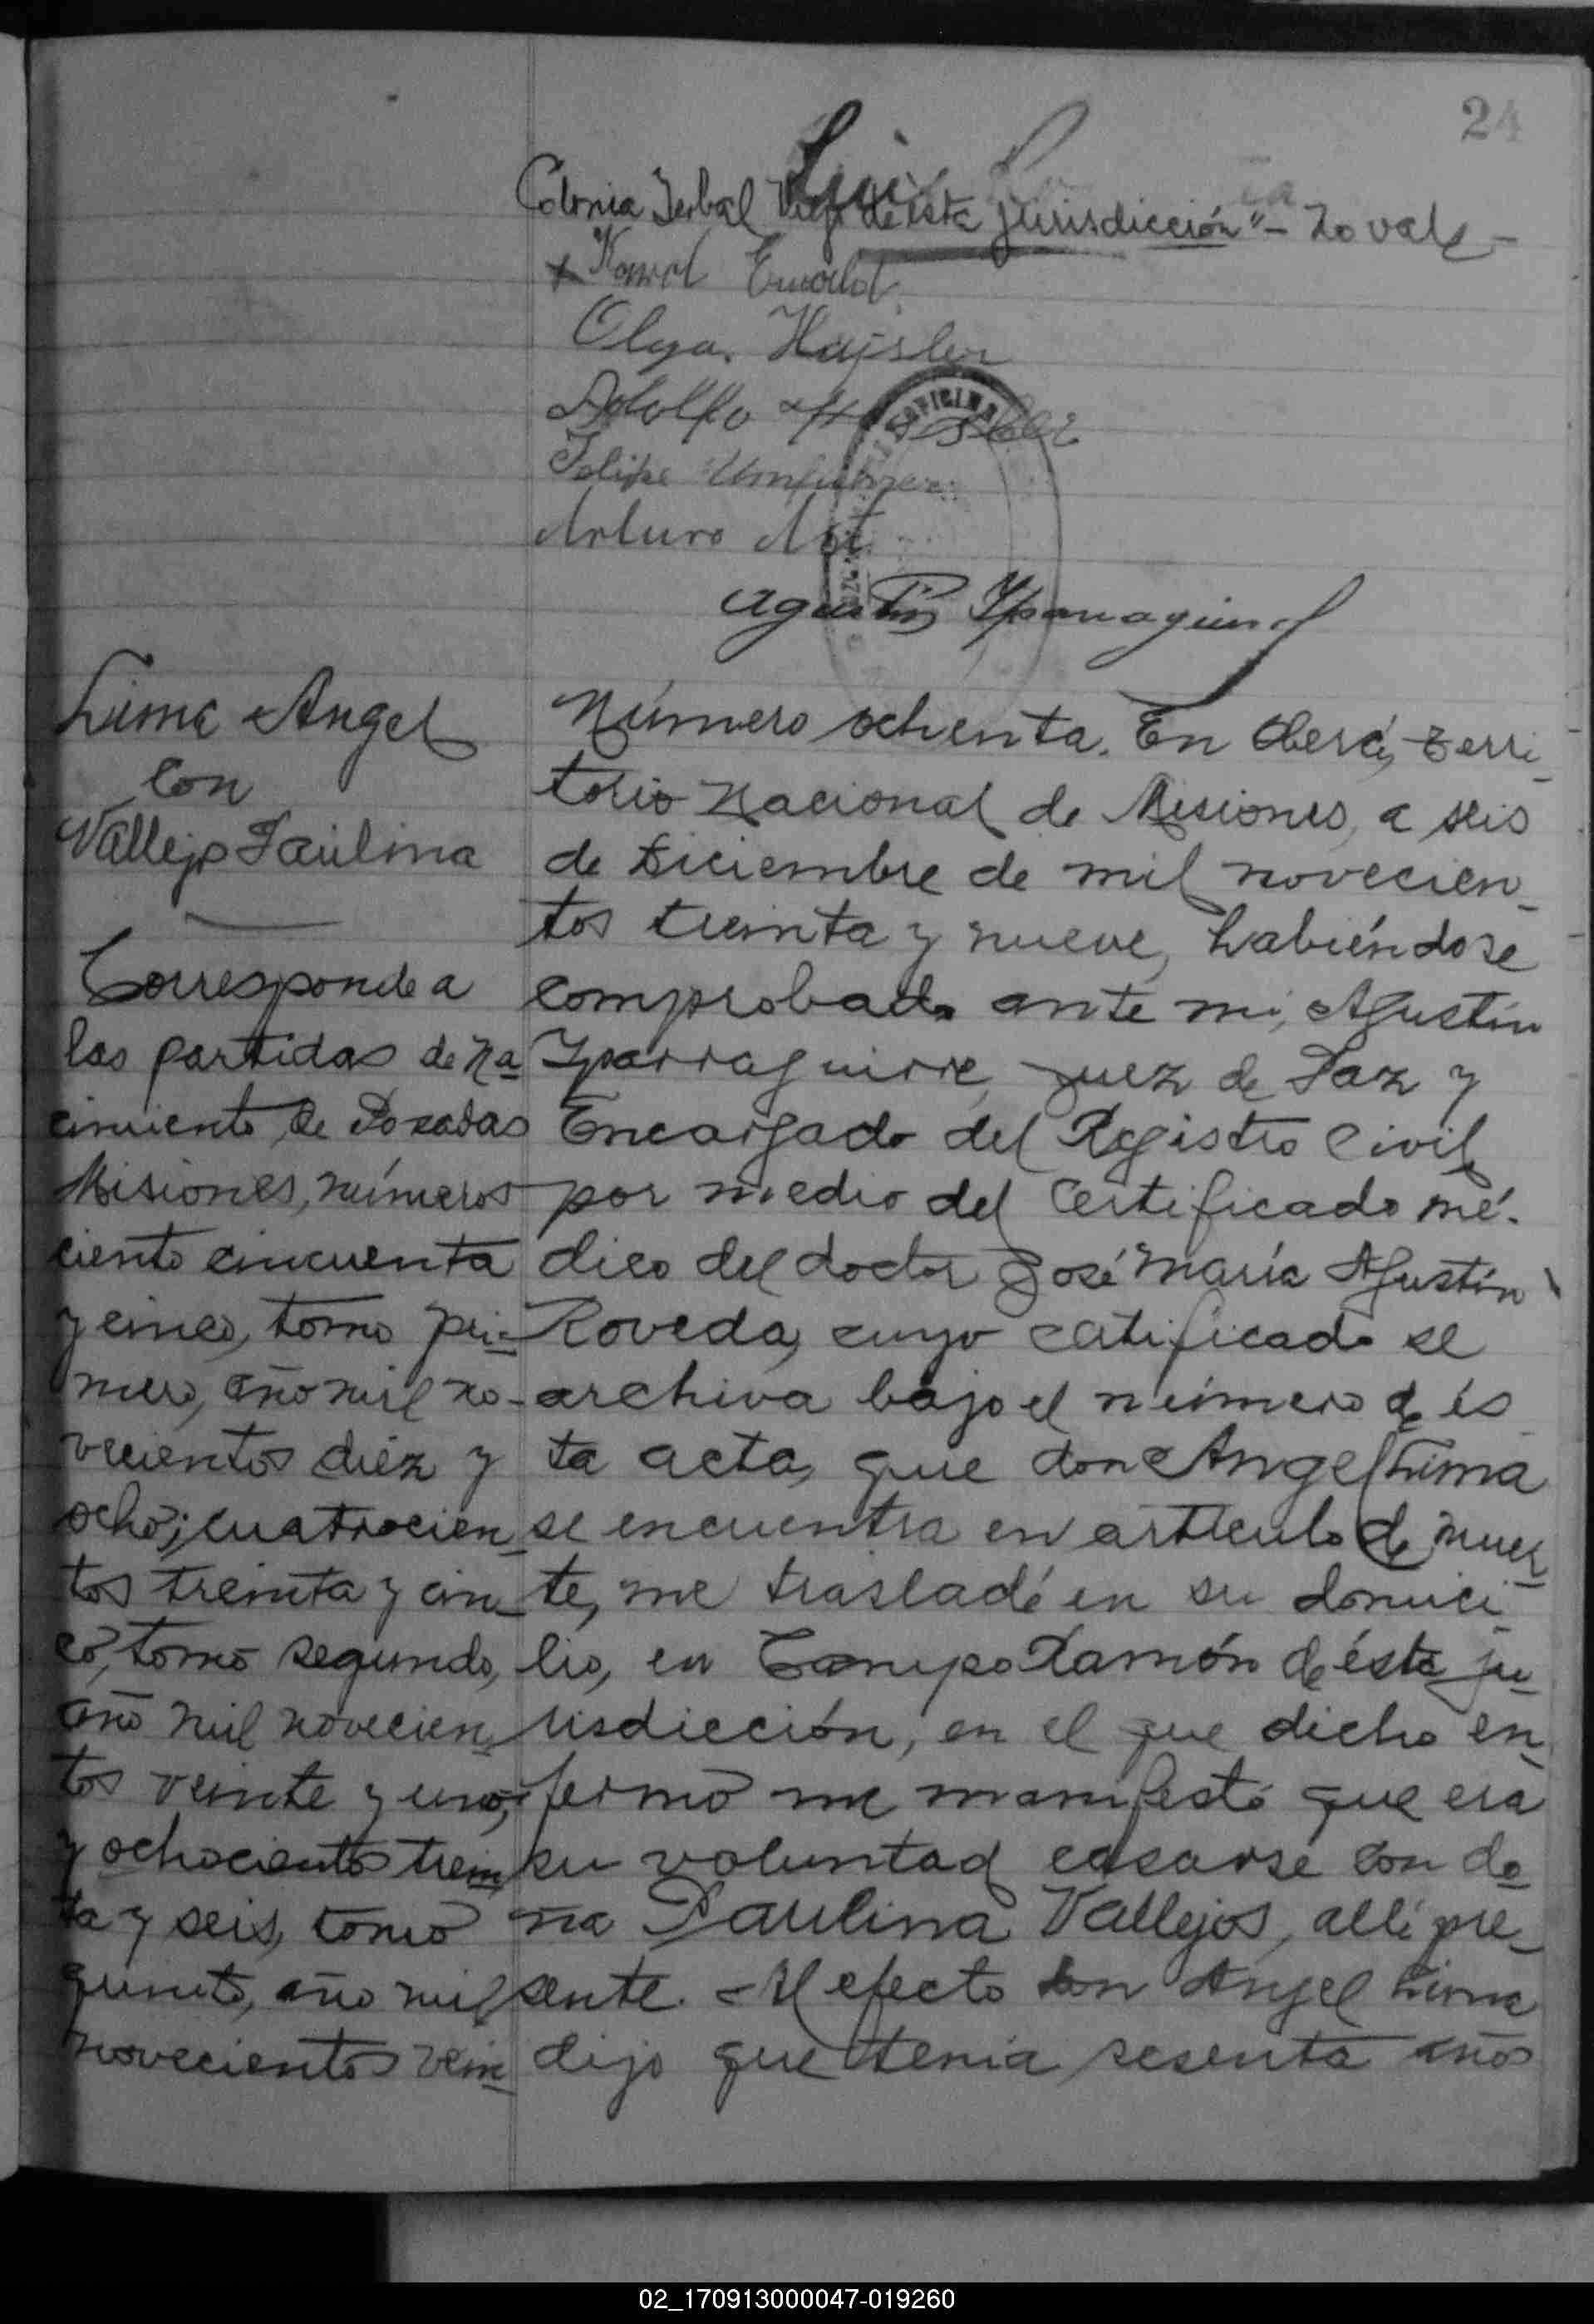 24
Colonia Yerbal Viejo de ésta jurisdicción"- No vale-
Ewald
Olga Hajsler
Adolfo
Felipe
Arturo
Agustín Yparraguirre
Lima Angel
con
Vallejo Paulina
Corresponde a
las partidas de na
cimiento, de Posadas
Misiones, números
ciento cincuenta
y cinco, tomo pri-
mero, año mil no-
vecientos diéz y
ocho; cuatrocien_
tos treinta y cin_
co, tomo segundo,
año mil novecien_
tos veinte y uno;
y ochocientos trein_
ta y seis, tomo
quinto, año mil
novecientos vein_
Número ochenta. En Oberá, Terri_
torio Nacional de Misiones, a seis
de Diciembre de mil novecien_
tos treinta y nueve, habiéndose
comprobado ante mi, Agustín
Yparraguirre, Juez de Paz y
Encargado del Registro Civil,
por medio del certificado mé-
dico del doctor José María Agustín
Roveda, cuyo certificado se
archiva bajo el número de és
ta acta, que don Angel Lima
se encuentra en artículo de muer_
te, me trasladé en su domici_
lio, en Campo Ramón de ésta ju_
risdicción, en el que dicho en_
fermo me manifestó que era
su voluntad casarse con do_
ña Paulina Vallejos, allí pre_
sente. Al efecto don Angel Lima
dijo que tenia sesenta años
02_170913000047-019260